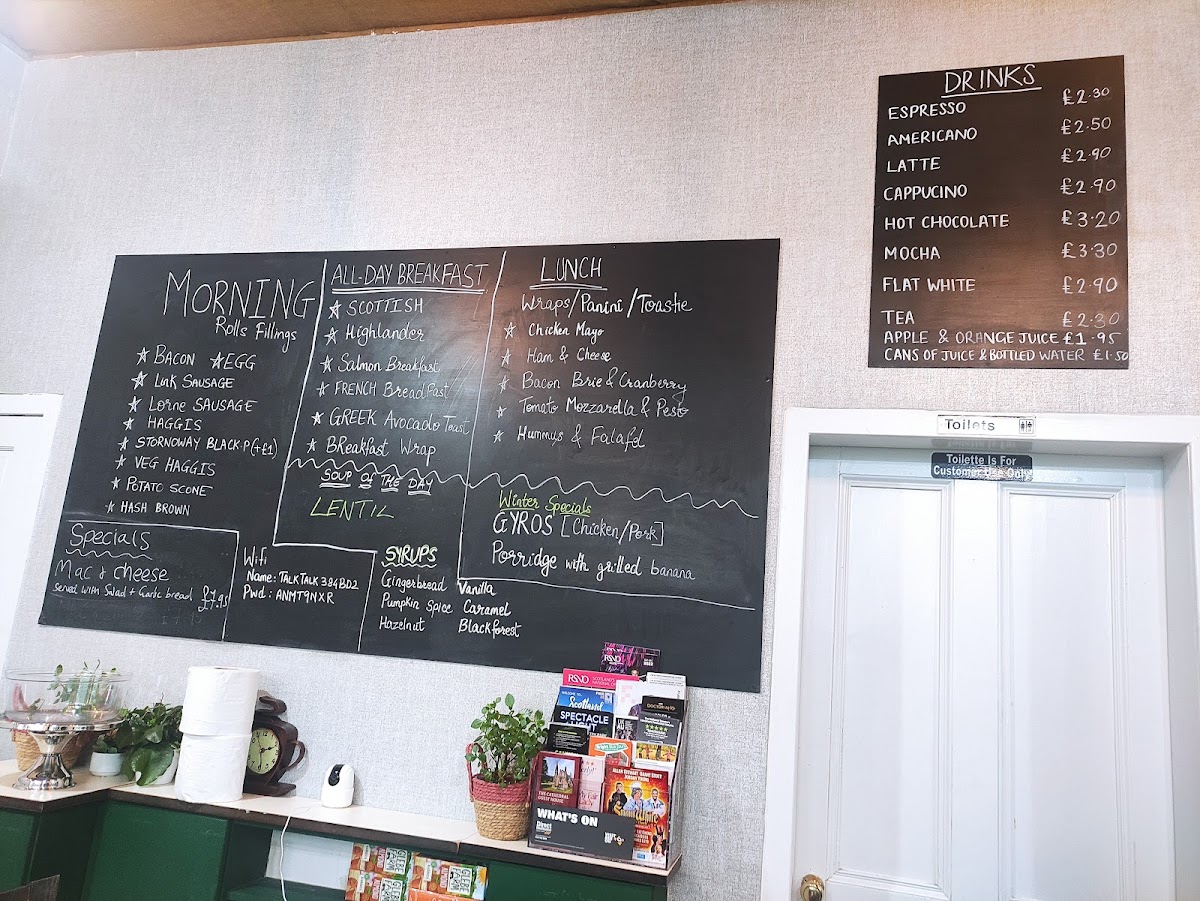 MORNING
Rolls Fillings
☆ BACON ☆ EGG
☆ LINK SAUSAGE
☆ LORNE SAUSAGE
☆ HAGGIS
☆ STORNOWAY BLACK.P (+£1)
☆ VEG HAGGIS
☆ POTATO SCONE
☆ HASH BROWN
Specials
Mac & cheese
served with Salad + Garlic bread
£7.95
Wifi
Name: TALKTALK384BD2
Pwd: ANMT9NXR
ALL-DAY BREAKFAST
☆ SCOTTISH
☆ Highlander
☆ Salmon Breakfast
☆ FRENCH BreadFast
☆ GREEK Avocado Toast
☆ BReakfast Wrap
SOUP OF THE DAY
LENTIL
SYRUPS
Gingerbread Vanilla
Pumpkin Spice Caramel
Hazelnut Blackforest
LUNCH
Wraps/Panini/Toastie
☆ Chicken Mayo
☆ Ham & Cheese
☆ Bacon Brie & Cranberry
☆ Tomato Mozzarella & Pesto
☆ Hummus & Falafel
Winter Specials
GYROS [Chicken/Pork]
Porridge with grilled banana
DRINKS
ESPRESSO £2.30
AMERICANO £2.50
LATTE £2.90
CAPPUCINO £2.90
HOT CHOCOLATE £3.20
MOCHA £3.30
FLAT WHITE £2.90
TEA £2.30
APPLE & ORANGE JUICE £1.95
CANS OF JUICE & BOTTLED WATER £1.50
Toilets
Toilette Is For
Customer Use Only
RSNO
RSNO
Scotland
SPECTACLE
THE CATHEDRAL
WHAT'S ON
Direct
GLEBE FARM